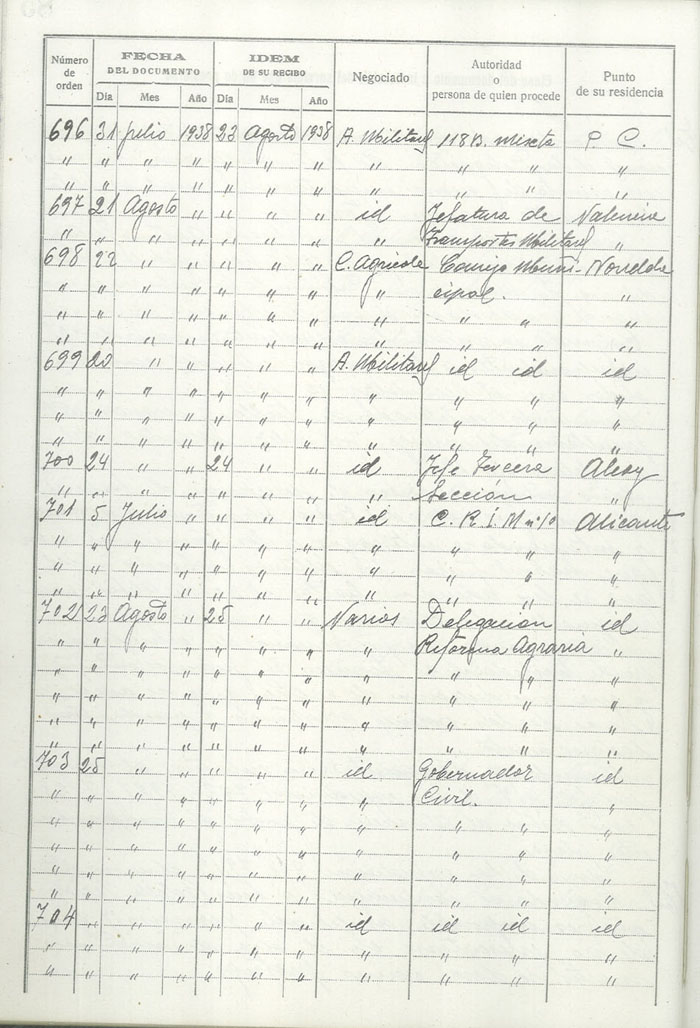 Número de orden FECHA DEL DOCUMENTO IDEM DE SU RECIBO Negociado Autoridad o persona de quien procede Punto de su residencia
Día Mes Año Día Mes Año
696 31 julio 1938 23 Agosto 1938 A. Militares 118 B. Mixta P. C.
" " " " " " " " " " "
" " " " " " " " " " "
697 21 Agosto " " " " id Jefatura de Valencia
" " " " " " " " Transportes Militares "
698 22 " " " " " C. Agrícola Consejo Muni- Novelda
" " " " " " " " cipal. "
" " " " " " " " " " "
" " " " " " " " " " "
699 20 " " " " " A. Militares id id id
" " " " " " " " " " "
" " " " " " " " " " "
" " " " " " " " " " "
700 24 " " 24 " " id Jefe Tercera Alcoy
" " " " " " " " Sección "
701 5 Julio " " " " id C. R. I. M nº 10 Alicante
" " " " " " " " " " "
" " " " " " " " " " "
" " " " " " " " " " "
702 23 Agosto " 25 " " Varios Delegación id
" " " " " " " " Reforma Agraria "
" " " " " " " " " " "
" " " " " " " " " " "
" " " " " " " " " " "
" " " " " " " " " " "
703 25 " " " " " id Gobernador id
" " " " " " " " Civil. "
" " " " " " " " " " "
" " " " " " " " " " "
" " " " " " " " " " "
" " " " " " " " " " "
704 " " " " " " id id id id
" " " " " " " " " " "
" " " " " " " " " " "